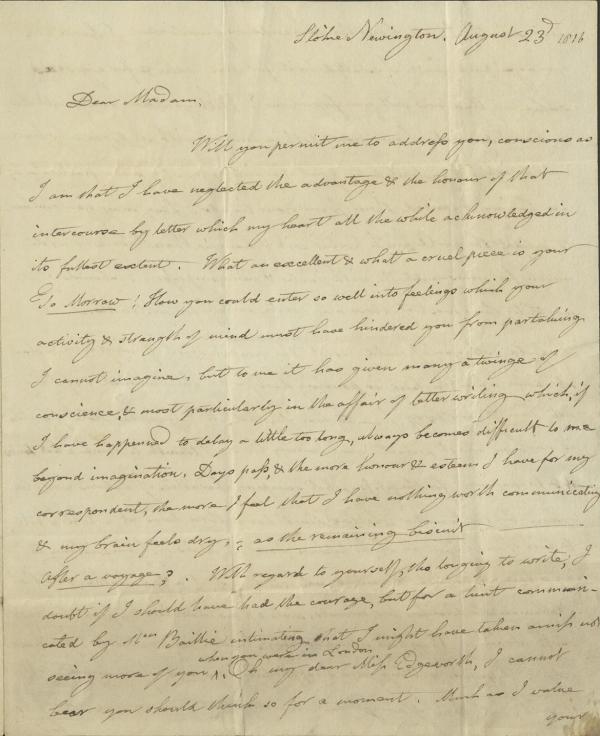 Stoke Newington. August 23d 1816
Dear Madam,
Will you permit me to address you, conscious as
I am that I have neglected the advantage & the honour of that
intercourse by letter which my heart all the while acknowledged in
its fullest extent. What an excellent & what a cruel piece is your
To Morrow! How you could enter so well into feelings which your
activity & strength of mind must have hindered you from partaking
I cannot imagine, but to me it has given many a twinge of
conscience, & most particularly in the affair of letter writing which, if
I have happened to delay a little too long, always becomes difficult to me
beyond imagination. Days pass, & the more honour & esteem I have for my
correspondent, the more I feel that I have nothing worth communicating
& my brain feels dry, as the remaining biscuit
After a voyage. With regard to yourself, tho longing to write, I
doubt if I should have had the courage, but for a hint communi-
cated by Mrs Baillie intimating that I might have taken amiss not
when you were in London
seeing more of you ^. Oh my dear Miss Edgeworth, I cannot
bear you should think so for a moment. Much as I value
your